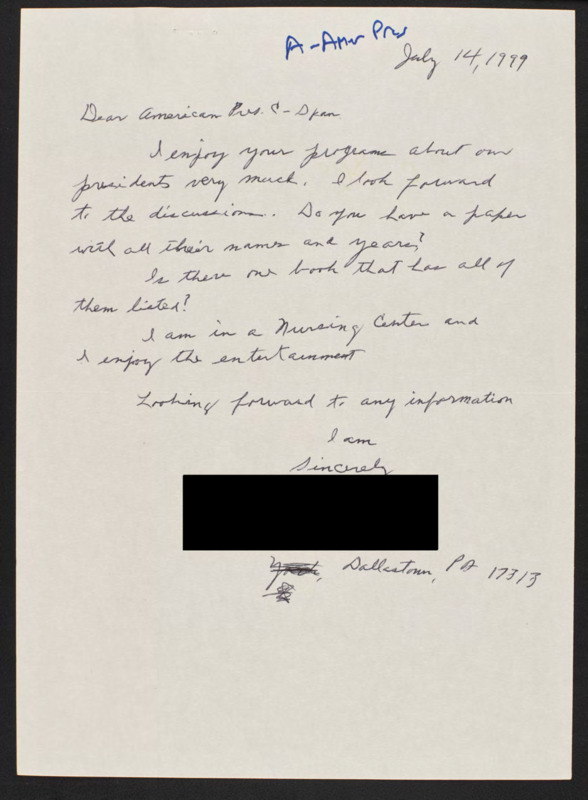 A-Amer Pres
July 14, 1999
Dear American Pres. C-Span
I enjoy your programs about our
presidents very much. I look forward
to the discussions. Do you have a paper
with all their names and years?
Is there one book that has all of
them listed?
I am in a Nursing Center and
I enjoy the entertainment
Looking forward to any information
I am
Sincerely
Dallastown, PA 17313